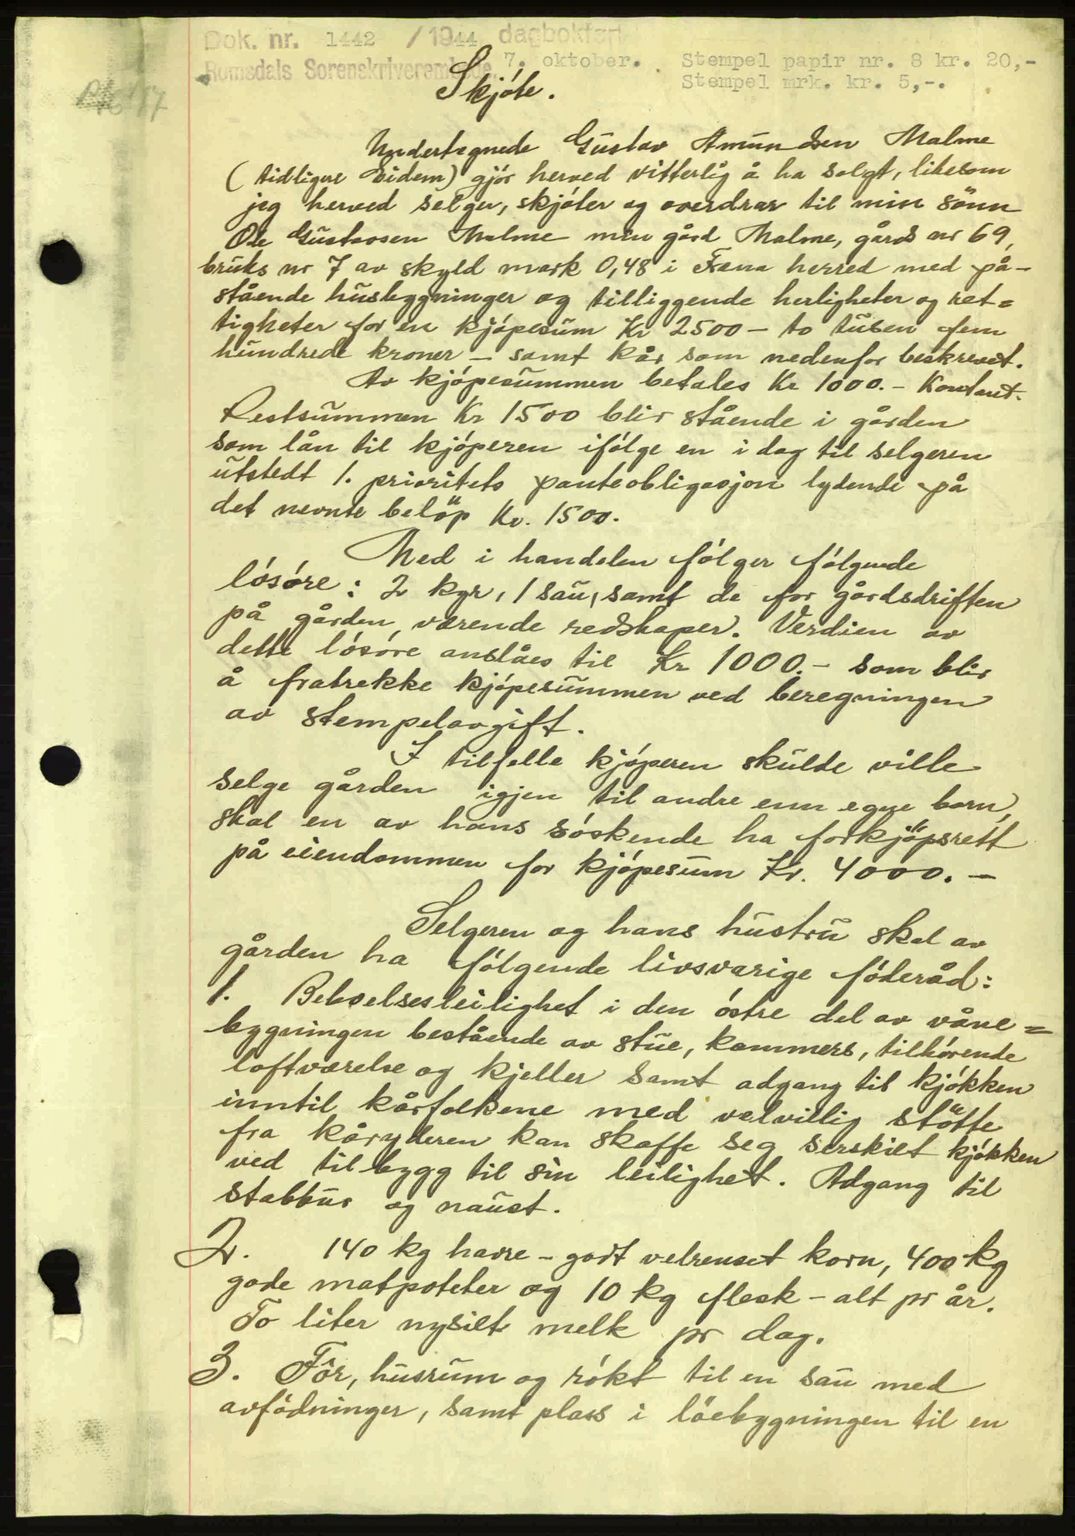 Dok. nr. 1442 /1944 dagbokført
Romsdals Sorenskriverembede 7. oktober. Stempel papir nr. 8 kr. 20,-
Stempel mrk. kr. 5,-.
Skjóte.
Undertegnede Gustav Amundsen Malme
(tidligere Eidem) gjór herved vitterlig å ha solgt, likesom
jeg herved selger, skjóter og overdrar til min sönn
Ole Gustavsen Malme min gård Malme, gårds nr 69,
bruks nr 7 av skyld mark 0,48 i Fræna herred med på-
stående husbygninger og tilliggende herligheter og ret=
tigheter for en kjópesum Kr 2500 - to tusen fem
hundrede kroner - samt kår som nedenfor beskrevet.
Av kjópesummen betales Kr 1000.- Kontant.
Restsummen Kr 1500 blir stående i gården
som lån til kjóperen ifólge en i dag til selgeren
utstedt 1. prioritets panteobligasjon lydende på
det nevnte belöp Kr. 1500.
Med i handelen fólger fólgende
lósóre: 2 kyr, 1 sau, samt de for gårdsdriften
på gården værende redskaper. Verdien av
dette lósóre anslåes til Kr 1000.- som blir
å fratrekke kjópesummen ved beregningen
av stempelavgift.
I tilfelle kjóperen skulde ville
selge gården igjen til andre enn egne barn,
skal en av hans sóskende ha forkjöpsrett
på eiendommen for kjópesum Kr. 4000.-
Selgeren og hans hustru skal av
gården ha fólgende livsvarige fóderåd:
1. Bekvelsesleilighet i den óstre del av våne=
bygningen bestående av stue, kammers, tilhórende
loftværelse og kjeller samt adgang til kjókken
inntil kårfolkene med velvillig stötte
fra kåryderen kan skaffe seg serskilt kjókken
ved tilbygg til sin leilighet. Adgang til
stabbur og naust.
2. 140 kg havre - godt velrenset korn, 400 kg
gode matpoteter og 10 kg flesk - alt pr år.
To liter nysilt melk pr dag.
3. Fôr, husrum og rókt til en sau med
avfódninger, samt plass i lóebygningen til en